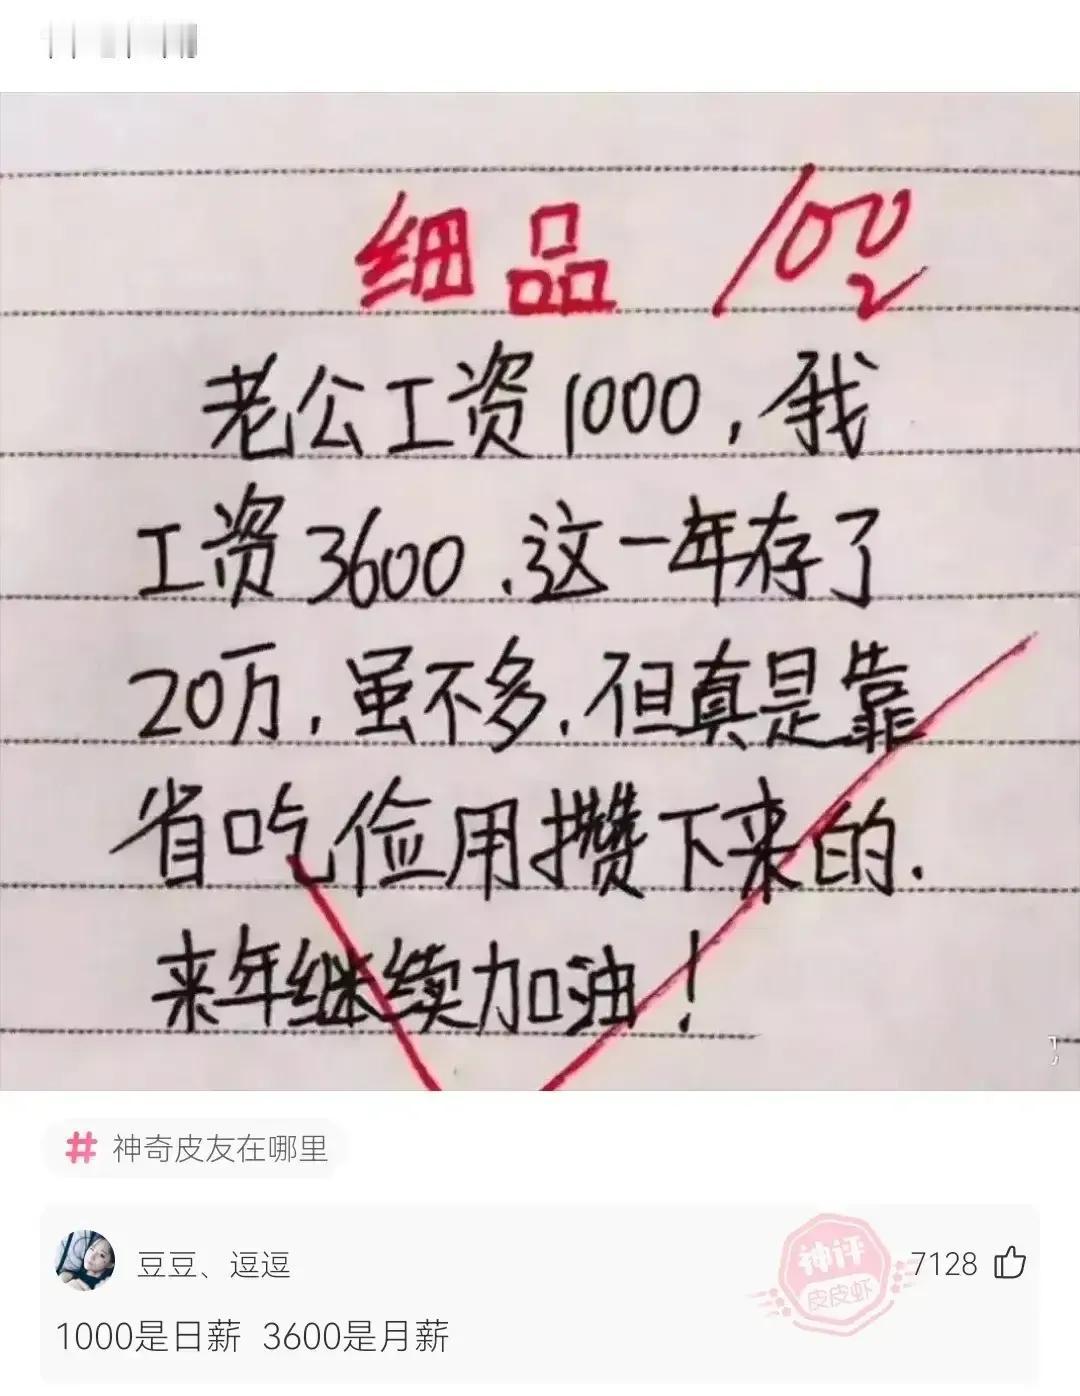 细品 100
老公工资1000，我
工资3600，这一年存了
20万，虽不多，但真是靠
省吃俭用攒下来的.
来年继续加油！
# 神奇皮友在哪里
豆豆、逗逗
神评
皮皮虾
7128
1000是日薪 3600是月薪